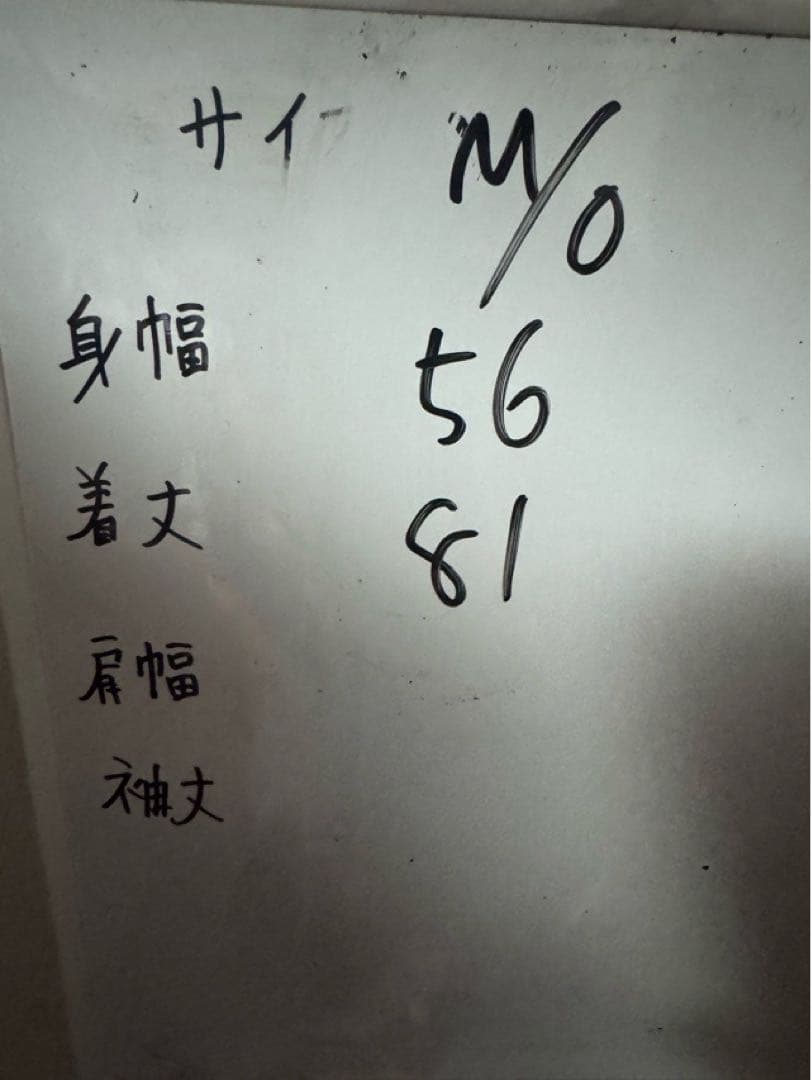 サイ M/0
身幅 56
着丈 81
肩幅
袖丈